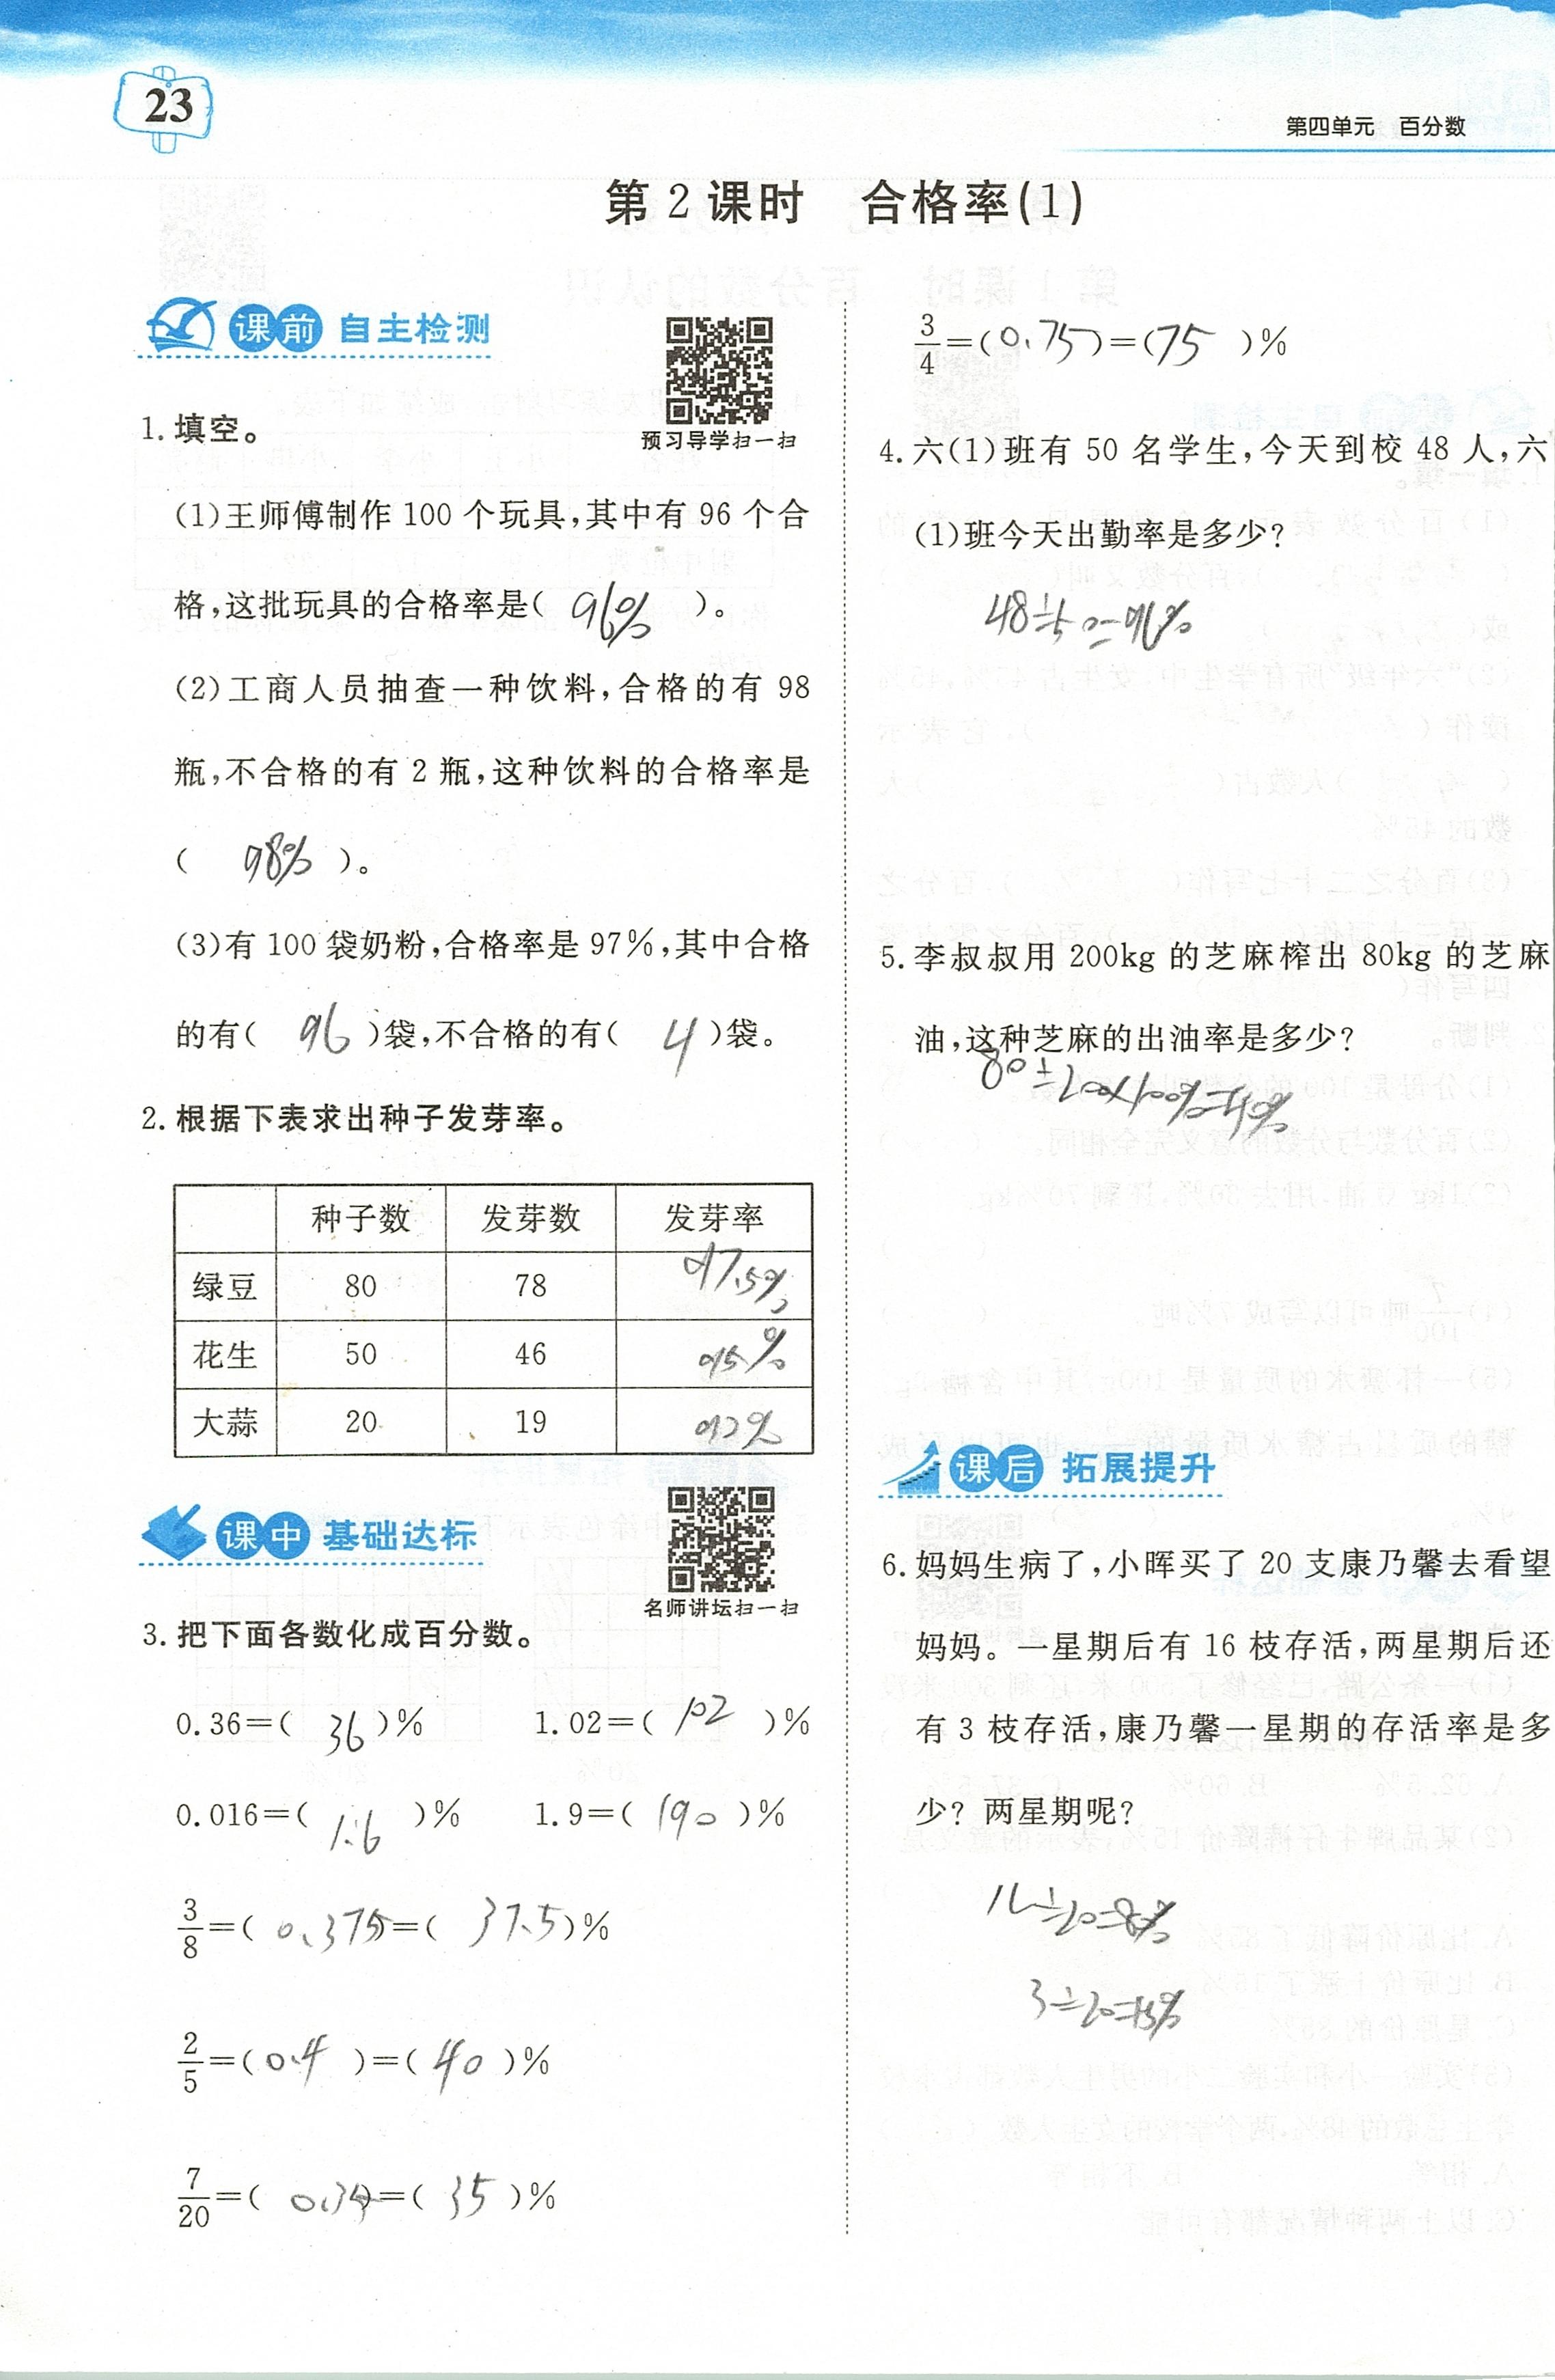 23
第四单元 百分数
第2课时 合格率(1)
课前 自主检测
预习导学扫一扫
1.填空。
(1)王师傅制作100个玩具,其中有96个合
格,这批玩具的合格率是( 96% )。
(2)工商人员抽查一种饮料,合格的有98
瓶,不合格的有2瓶,这种饮料的合格率是
( 98% )。
(3)有100袋奶粉,合格率是97%,其中合格
的有( 96 )袋,不合格的有( 4 )袋。
2.根据下表求出种子发芽率。
种子数 发芽数 发芽率
绿豆 80 78 97.5%
花生 50 46 95%
大蒜 20 19 92%
课中 基础达标
名师讲坛扫一扫
3.把下面各数化成百分数。
0.36=( 36 )% 1.02=( 102 )%
0.016=( 1.6 )% 1.9=( 190 )%
3/8=( 0.375 )=( 37.5 )%
2/5=( 0.4 )=( 40 )%
7/20=( )=( 35 )%
3/4=( 0.75 )=( 75 )%
4.六(1)班有50名学生,今天到校48人,六
(1)班今天出勤率是多少?
48÷50=96%
5.李叔叔用200kg的芝麻榨出80kg的芝麻
油,这种芝麻的出油率是多少?
80÷200×100%=40%
课后 拓展提升
6.妈妈生病了,小晖买了20支康乃馨去看望
妈妈。一星期后有16枝存活,两星期后还
有3枝存活,康乃馨一星期的存活率是多
少?两星期呢?
16÷20=80%
3÷20=15%